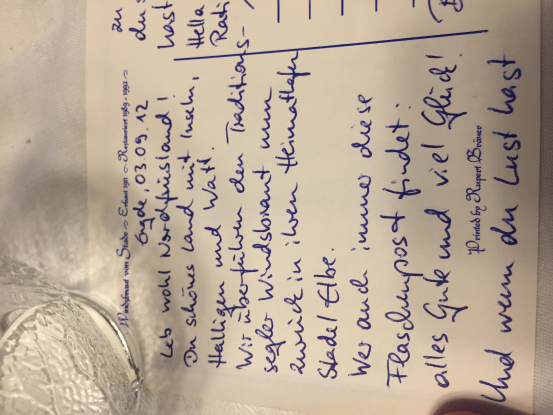 Windsbraut von Stade ~ Erbaut 1911 ~ Restauriert 1989 - 1992 ~
03.09.12
Leb wohl Nordfriesland!
Du schönes Land mit Inseln,
Halligen und Watt.
Wir überführen den Traditions-
segler Windsbraut nun
zurück in ihren Heimathafen
Stade/Elbe.
Wer auch immer diese
Flaschenpost findet:
alles Gute und viel Glück!
Printed by Rupert Bräuer
Und wenn du Lust hast
zu
du s
hast
Hella
Radi